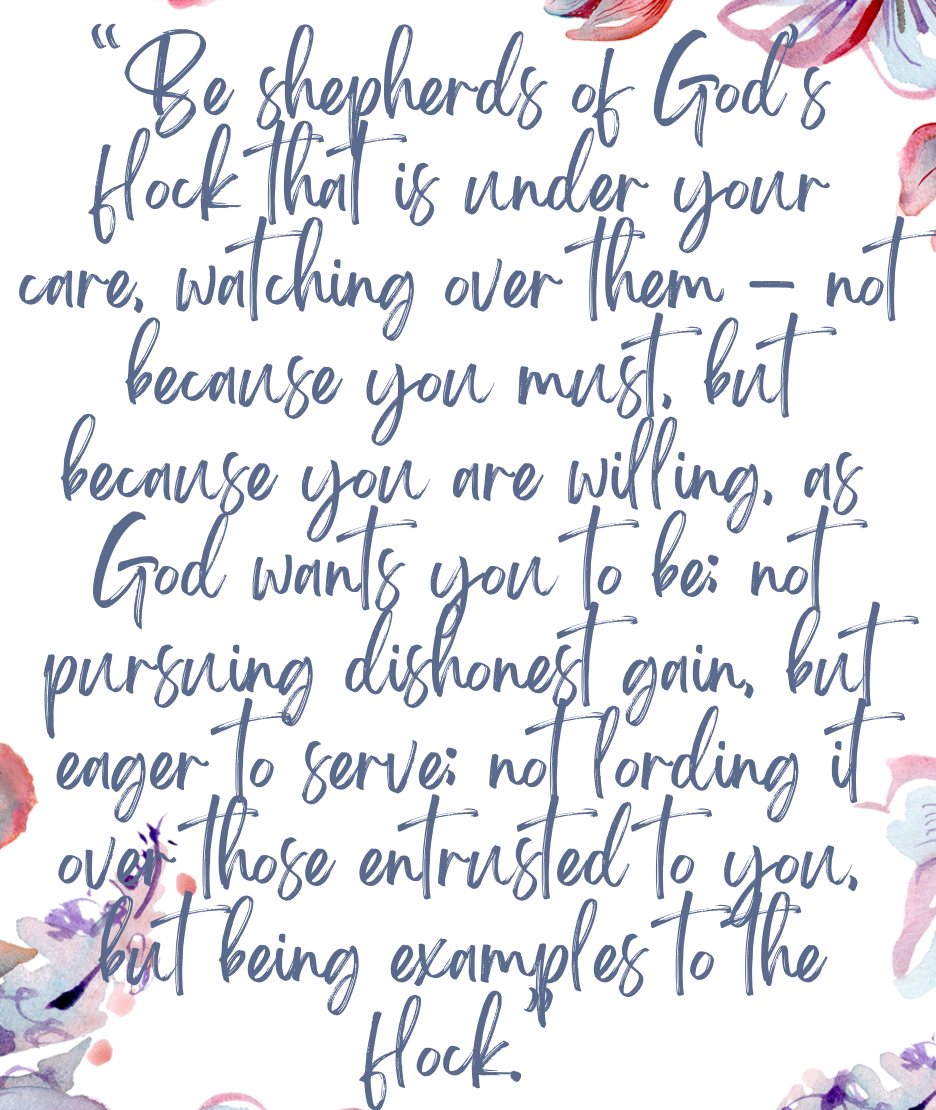 “Be shepherds of God’s
flock that is under your
care, watching over them – not
because you must, but
because you are willing, as
God wants you to be; not
pursuing dishonest gain, but
eager to serve; not lording it
over those entrusted to you,
but being examples to the
flock.”